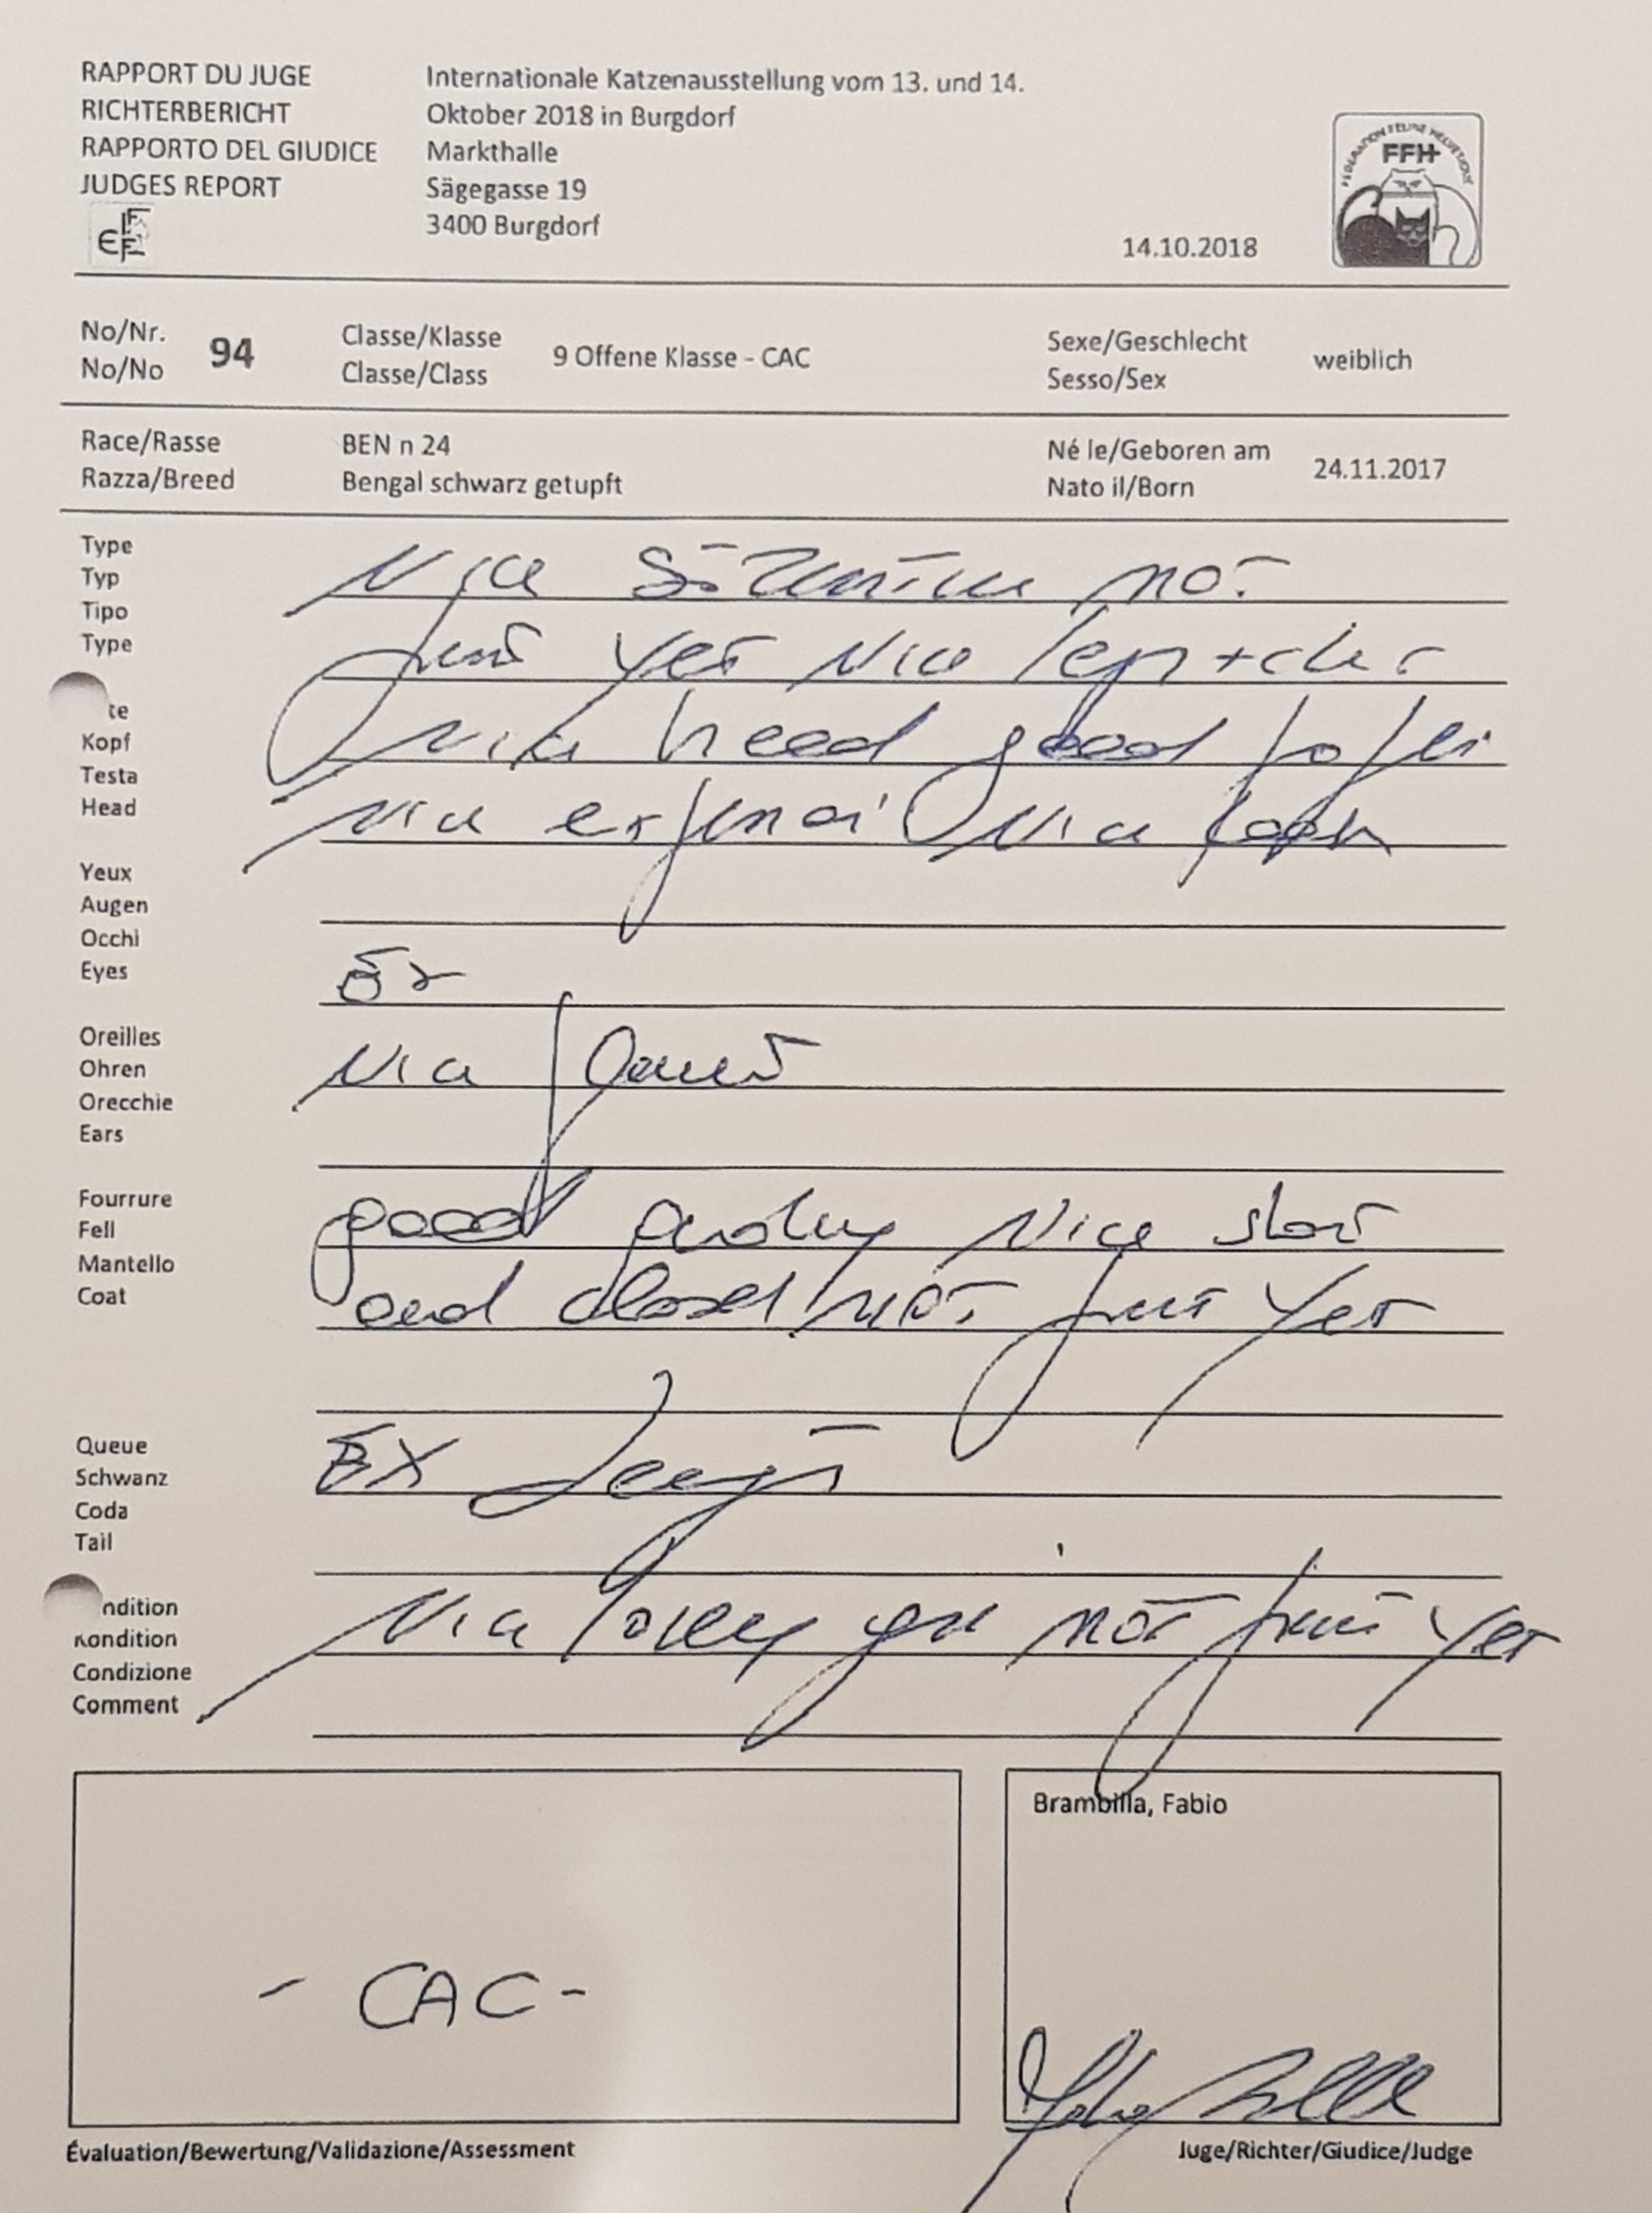 RAPPORT DU JUGE
RICHTERBERICHT
RAPPORTO DEL GIUDICE
JUDGES REPORT
Internationale Katzenausstellung vom 13. und 14.
Oktober 2018 in Burgdorf
Markthalle
Sägegasse 19
3400 Burgdorf
14.10.2018
FFH
No/Nr.
No/No
94
Classe/Klasse
Classe/Class
9 Offene Klasse - CAC
Sexe/Geschlecht
Sesso/Sex
weiblich
Race/Rasse
Razza/Breed
BEN n 24
Bengal schwarz getupft
Né le/Geboren am
Nato il/Born
24.11.2017
Type
Typ
Tipo
Type
Nice not
yet Nice
te
Kopf
Testa
Head
Nice head good
Nice Nice
Yeux
Augen
Occhi
Eyes
Ex
Oreilles
Ohren
Orecchie
Ears
Nice placed
Fourrure
Fell
Mantello
Coat
good Nice short
and closed not yet
Queue
Schwanz
Coda
Tail
EX length
ndition
Kondition
Condizione
Comment
Nice not yet
- CAC -
Brambilla, Fabio
Évaluation/Bewertung/Validazione/Assessment
Juge/Richter/Giudice/Judge